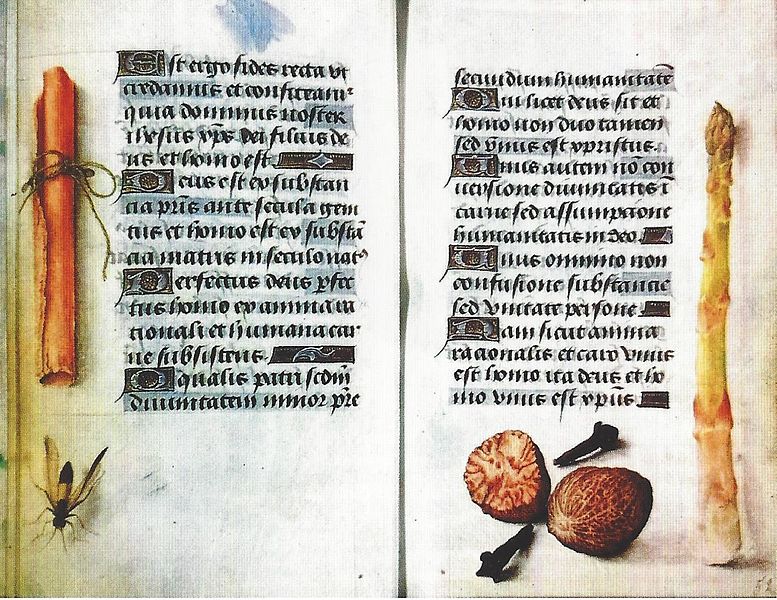 Est ergo fides recta vt
credamus et confiteamur
quia dominus noster
ihesus xps dei filius de
us et homo est.
Deus est ex substan
tia prīs ante secula geni
tus et homo est ex substā
tia matris in seculo natꝰ
Perfectus deus ꝑfec
tus homo ex anima ra
tionali et humana car
ne subsistens.
Equalis patri scdm̄
diuinitatem minor pr̄e
secundum humanitatē
Qui licet deus sit et
homo non duo tamen
sed vnus est xpristus.
Unus autem nō con
uersione diuinitatis ī
carne sed assumptione
humanitatis in deo.
Unus omnino non
confusione substantie
sed vnitate persone.
Nam sicut anima
rationalis et caro vnus
est homo ita deus et ho
mo vnus est xpūs.